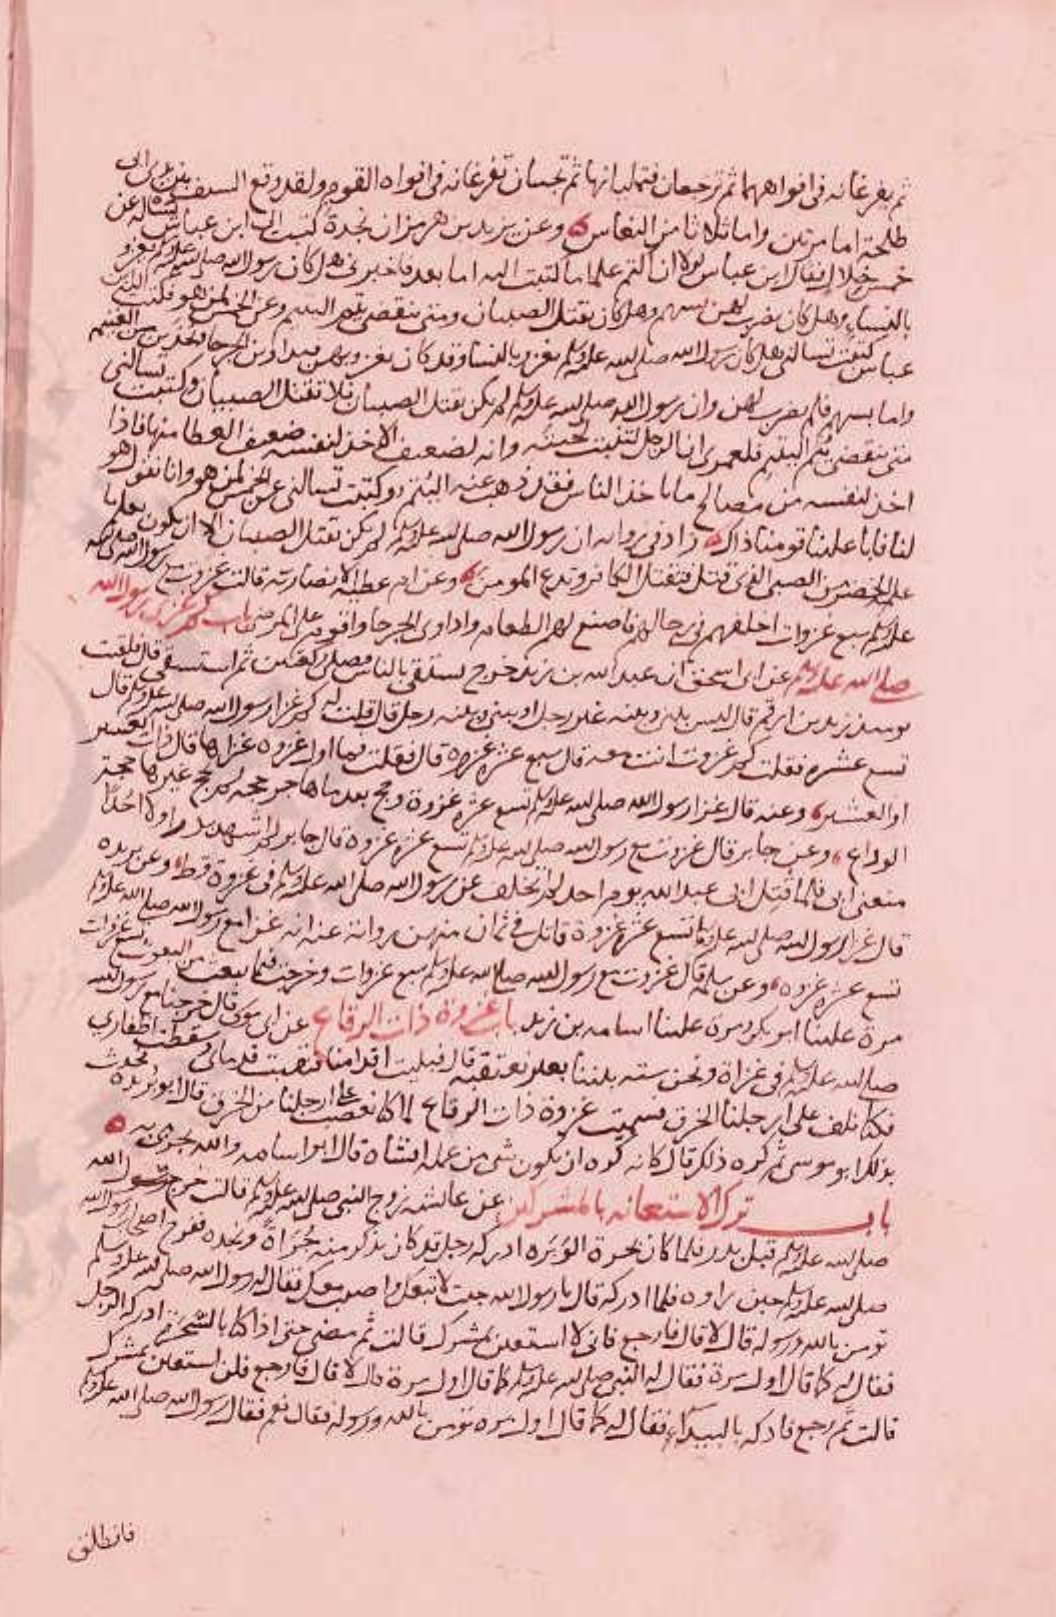 ثم تفرغانه في افواههما ثم ترجعان فتملآنها ثم تجيئان تفرغانه في افواه القوم ولقد وقع السيف من يدي ابي
طلحة اما مرتين واما ثلاثا من النعاس وعن يزيد بن هرمز ان نجدة كتب الى ابن عباس يساله عن
خمس خلال فقال ابن عباس لولا ان اكتم علما ما كتبت اليه اما بعد فاخبرني هل كان رسول الله صلى الله عليه وسلم يغزو
بالنساء وهل كان يضرب لهن بسهم وهل كان يقتل الصبيان ومتى ينقضي يتم اليتيم وعن الخمس لمن هو فكتب اليه ابن
عباس كتبت تسالني هل كان رسول الله صلى الله عليه وسلم يغزو بالنسا وقد كان يغزو بهن فيداوين الجرحا ويحذين من الغنيمه
واما بسهم فلم يضرب لهن وان رسول الله صلى الله عليه وسلم لم يكن يقتل الصبيان فلا تقتل الصبيان وكتبت تسالني
متى ينقضي يتم اليتيم فلعمري ان الرجل لتنبت لحيته وانه لضعيف الاخذ لنفسه ضعيف العطا منها فاذا
اخذ لنفسه من صالح ما ياخذ الناس فقد ذهب عنه اليتم وكتبت تسالني عن الخمس لمن هو وانا نقول هو
لنا فابا علينا قومنا ذاك زاد في رواية ان رسول الله صلى الله عليه وسلم لم يكن يقتل الصبيان الا ان تكون تعلم ما
علم الخضر من الصبي الذي قتل فتقتل الكافر وتدع المومن وعن ام عطية الانصارية قالت غزوت مع رسول الله صلى الله
عليه وسلم سبع غزوات اخلفهم في رحالهم فاصنع لهم الطعام واداوي الجرحا واقوم على المرضى باب كم غزى رسول الله
صلى الله عليه وسلم عن ابي اسحق ان عبد الله بن يزيد خرج يستسقي بالناس فصلى ركعتين ثم استسقى قال فلقيت
يوميذ زيد بن ارقم قال ليس بيني وبينه غير رجل او بيني وبينه رجل قال قلت له كم غزا رسول الله صلى الله عليه وسلم قال
تسع عشره فقلت كم غزوت انت معه قال سبع عشره غزوه قال فقلت فما اول غزوه غزاها قال ذات العسير
او العشير وعنه قال غزا رسول الله صلى الله عليه وسلم تسع عشره غزوة وحج بعد ما هاجر حجه لم يحج غيرها حجة
الوداع وعن جابر قال غزوت مع رسول الله صلى الله عليه وسلم تسع عشره غزوه قال جابر لم اشهد بدرا ولا احدا
منعني ابي فلما قتل ابي عبد الله يوم احد لم اتخلف عن رسول الله صلى الله عليه وسلم في غزوة قط وعن بريده
قال غزا رسول الله صلى الله عليه وسلم تسع عشره غزوة قاتل في ثمان منهن رواية عنه انه غزا مع رسول الله صلى الله عليه وسلم
تسع عشره غزوه وعن سلمه قال غزوت مع رسول الله صلى الله عليه وسلم سبع غزوات وخرجت فيما يبعث من البعوث تسع غزوات
مرة علينا ابو بكر ومرة علينا اسامه بن زيد باب غزوة ذات الرقاع عن ابي موسى قال خرجنا مع رسول الله
صلى الله عليه وسلم في غزاة ونحن سته بيننا بعير نعتقبه قال فنقبت اقدامنا فنقبت قدماي وسقطت اظفاري
فكنا نلف على ارجلنا الخرق فسميت غزوة ذات الرقاع لما كنا نعصب على ارجلنا من الخرق قال ابو برده فحدث
بذلك ابو موسى ثم كره ذلك قال كانه كره ان يكون شي من عمله افشاه قال ابو اسامه والله يجزي به
باب ترك الاستعانه بالمشركين عن عائشه زوج النبي صلى الله عليه وسلم قالت خرج رسول الله
صلى الله عليه وسلم قبل بدر فلما كان بحرة الوبره ادركه رجل قد كان يذكر منه جراة ونجده ففرح اصحاب رسول الله
صلى الله عليه وسلم حين راوه فلما ادركه قال يا رسول الله جيت لاتبعك واصيب معك فقال له رسول الله صلى الله عليه وسلم
تومن بالله ورسوله قال لا قال فارجع فاني لا استعين بمشرك قالت ثم مضى حتى اذا كنا بالشجره ادركه الرجل
فقال له كما قال اول مرة فقال له النبي صلى الله عليه وسلم كما قال اول مرة قال لا قال فارجع فلن استعين بمشرك
قالت ثم رجع فادركه بالبيداء فقال له كما قال اول مره تومن بالله ورسوله فقال نعم فقال رسول الله صلى الله عليه وسلم
فانطلق